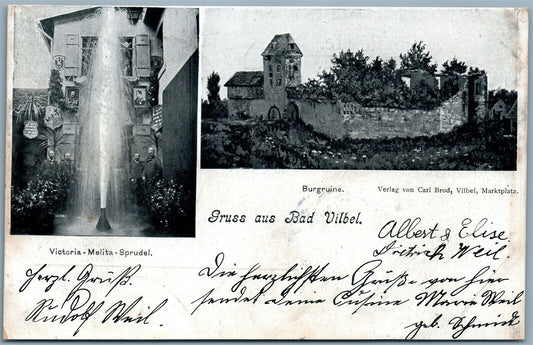 Burgruine.
Verlag von Carl Brod, Vilbel, Marktplatz.
Gruss aus Bad Vilbel.
Victoria-Melita-Sprudel.
Albert & Elise
Dietrich Weil.
Herzl. Gruß
Rudolf Weil.
Die herzlichsten Grüße von hier
sendet deine Cusine Marie Weil
geb. Schmidt